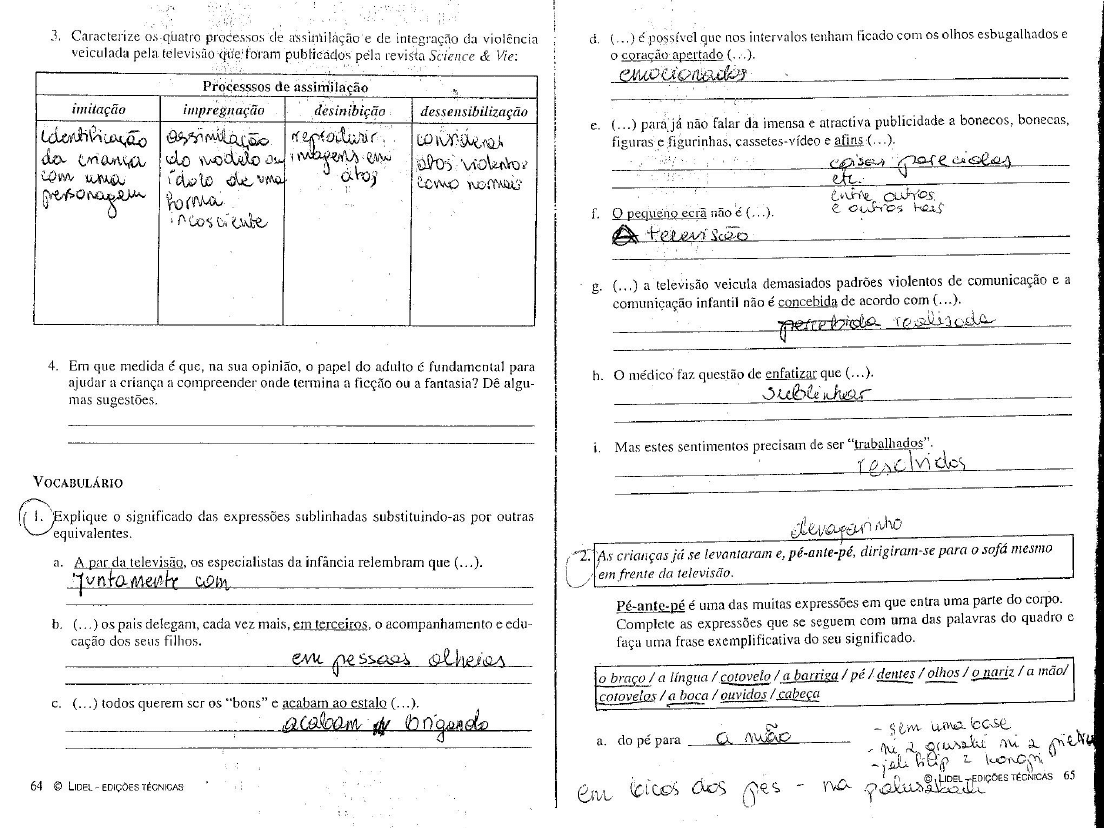 3. Caracterize os quatro processos de assimilação e de integração da violência
veiculada pela televisão que foram publicados pela revista Science & Vie:
Processsos de assimilação
imitação
impregnação
desinibição
dessensibilização
Identificação
da criança
com uma
personagem
assimilação
do modelo ou
ídolo de uma
forma
incosciente
reproduzir
imagens em
atos
considerar
atos violentos
como normais
4. Em que medida é que, na sua opinião, o papel do adulto é fundamental para
ajudar a criança a compreender onde termina a ficção ou a fantasia? Dê algu-
mas sugestões.
VOCABULÁRIO
1. Explique o significado das expressões sublinhadas substituindo-as por outras
equivalentes.
a. A par da televisão, os especialistas da infância relembram que (...).
Juntamente com
b. (...) os pais delegam, cada vez mais, em terceiros, o acompanhamento e edu-
cação dos seus filhos.
em pessoas alheias
c. (...) todos querem ser os “bons” e acabam ao estalo (...).
acabam brigando
64 © LIDEL – EDIÇÕES TÉCNICAS
d. (...) é possível que nos intervalos tenham ficado com os olhos esbugalhados e
o coração apertado (...).
emocionados
e. (...) para já não falar da imensa e atractiva publicidade a bonecos, bonecas,
figuras e figurinhas, cassetes-vídeo e afins (...).
coisas parecidas
etc.
entre outros
e outros tais
f. O pequeno ecrã não é (...).
A televisão
g. (...) a televisão veicula demasiados padrões violentos de comunicação e a
comunicação infantil não é concebida de acordo com (...).
percebida realizada
h. O médico faz questão de enfatizar que (...).
sublinhar
i. Mas estes sentimentos precisam de ser “trabalhados”.
resolvidos
devagarinho
2. As crianças já se levantaram e, pé-ante-pé, dirigiram-se para o sofá mesmo
em frente da televisão.
Pé-ante-pé é uma das muitas expressões em que entra uma parte do corpo.
Complete as expressões que se seguem com uma das palavras do quadro e
faça uma frase exemplificativa do seu significado.
o braço / a língua / cotovelo / a barriga / pé / dentes / olhos / o nariz / a mão/
cotovelos / a boca / ouvidos / cabeça
a. do pé para a mão
- sem uma base
- ni z gruszki ni z
© LIDEL – EDIÇÕES TÉCNICAS 65
em bicos dos pés - na